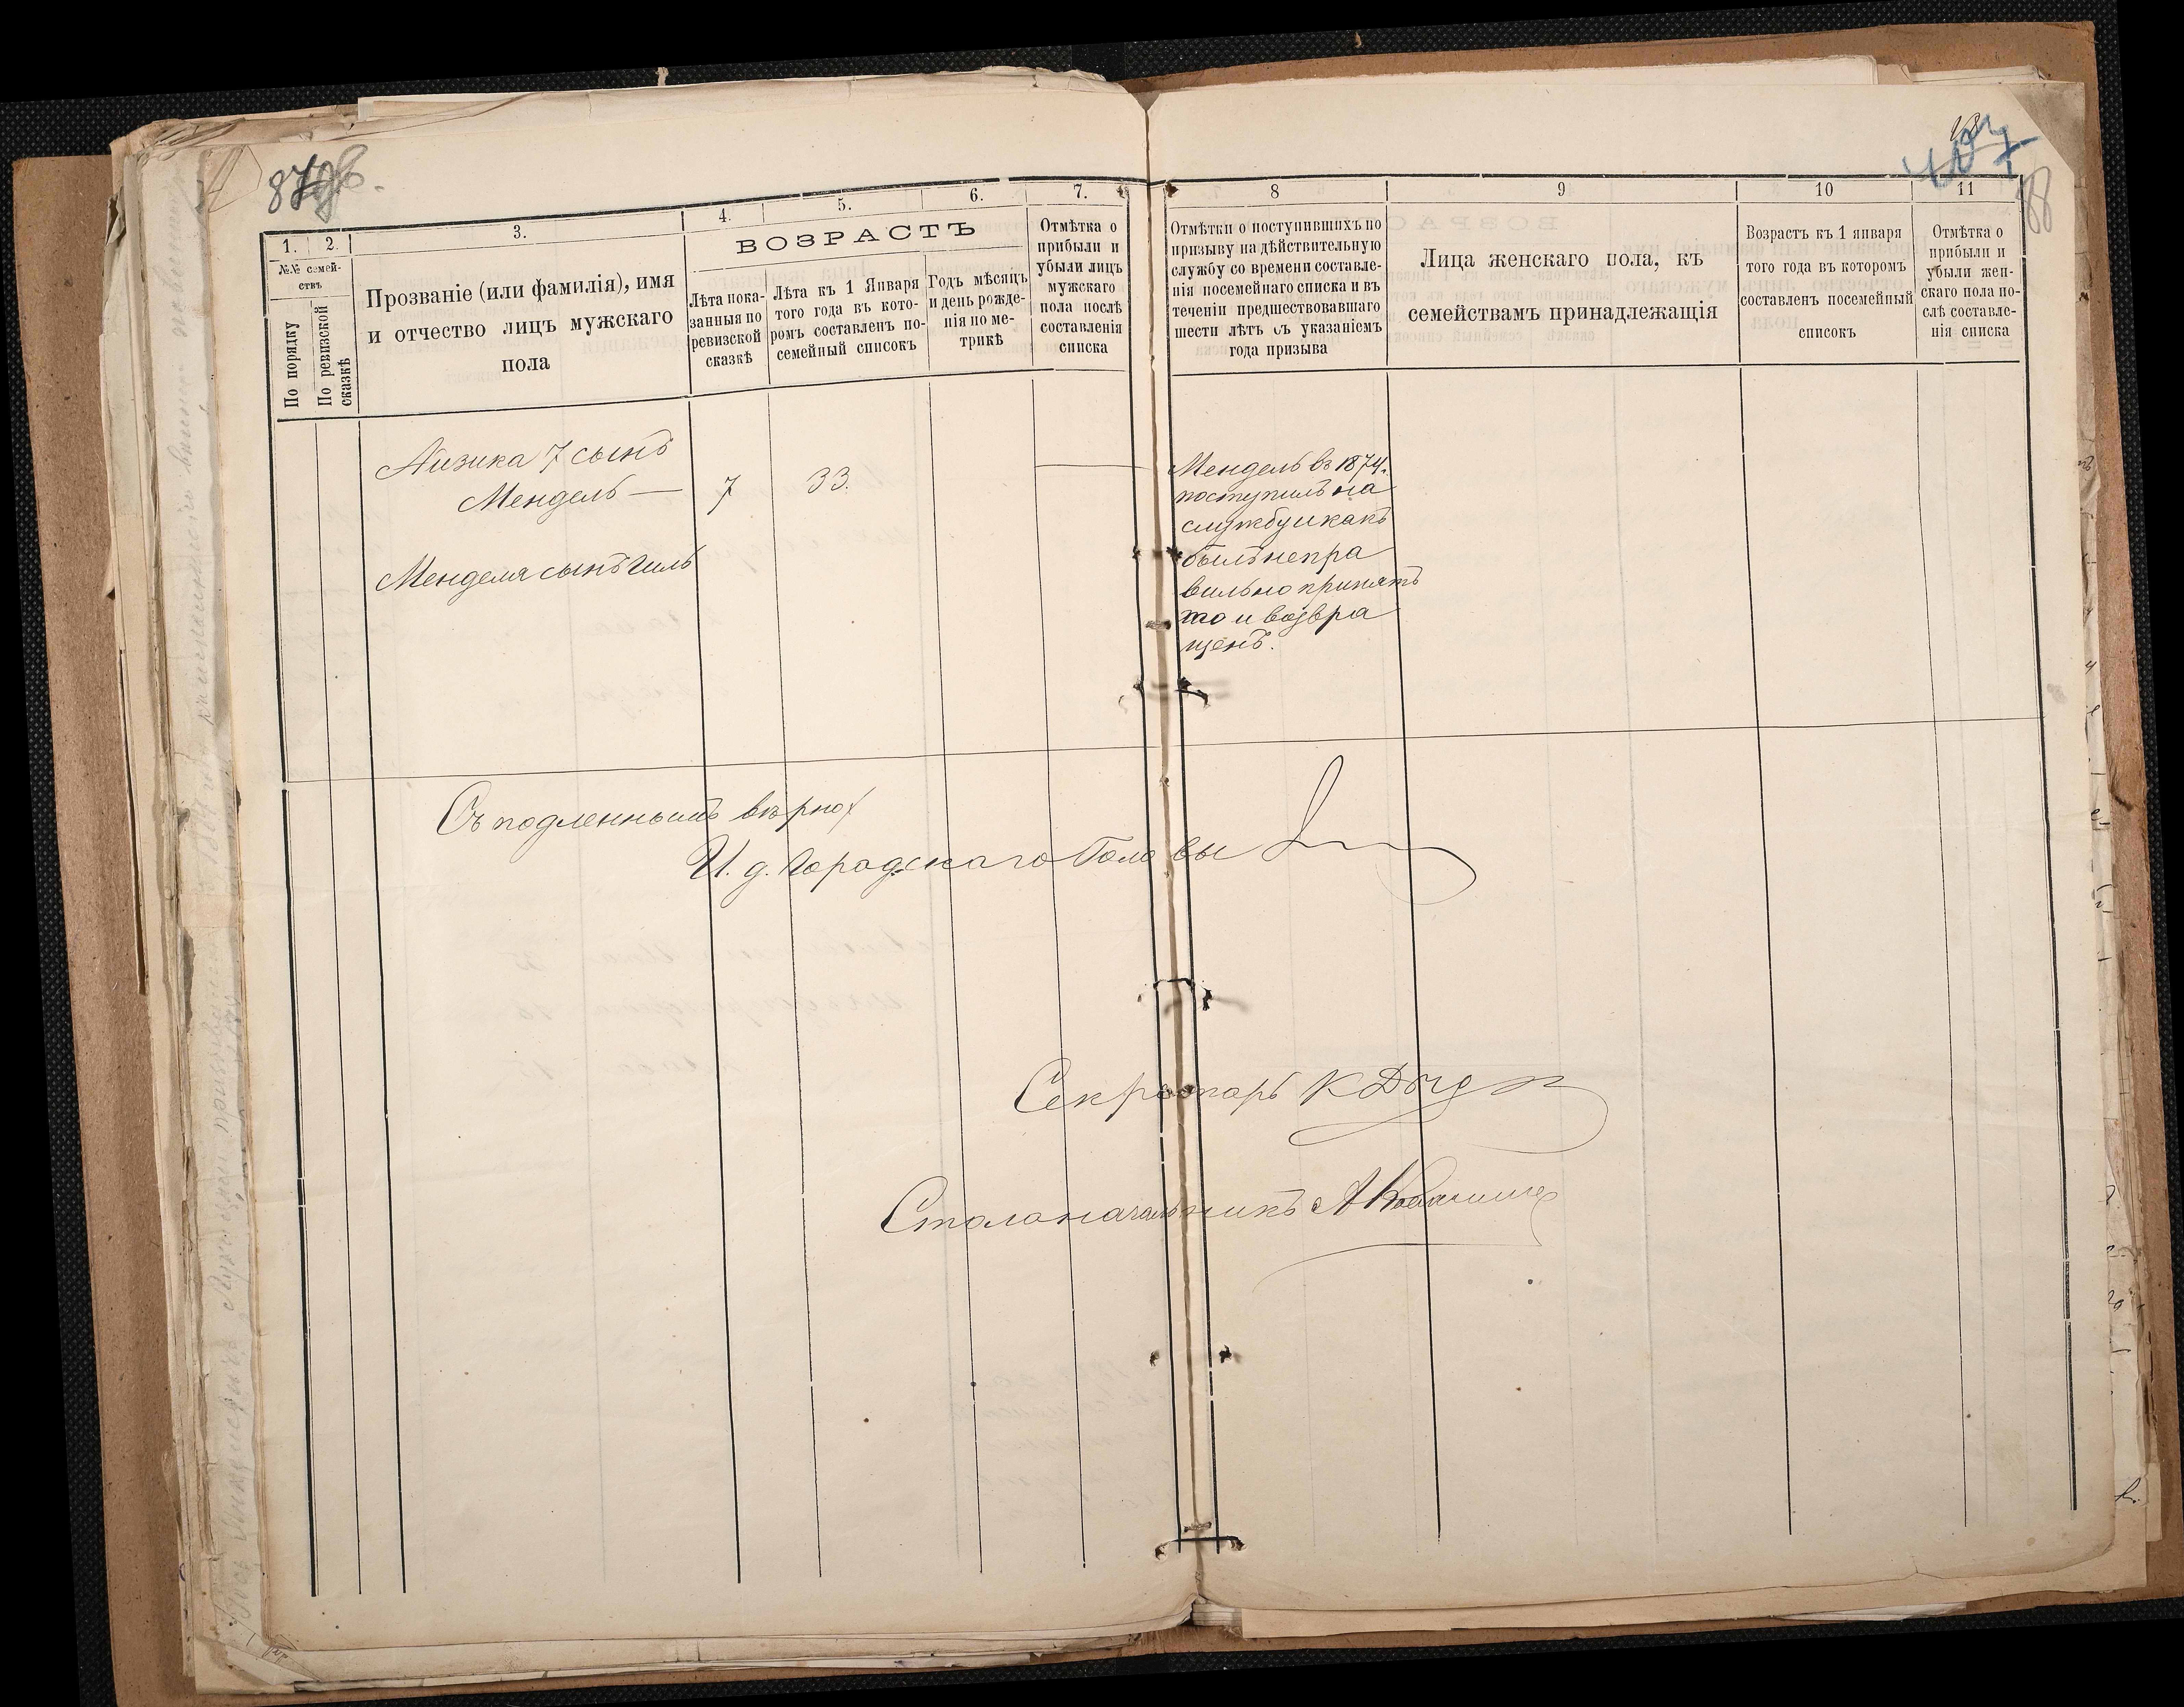 87об.
407
88
1. 2. 3. 4. 5. 6. 7. 8 9 10 11
№№ семей-
ствъ
По порядку
По ревизской
сказкѣ
Прозваніе (или фамилія), имя
и отчество лицъ мужскаго
пола
ВОЗРАСТЪ
Лѣта пока-
занныя по
ревизской
сказкѣ
Лѣта къ 1 Января
того года въ кото-
ромъ составленъ по-
семейный списокъ
Годъ мѣсяцъ
и день рожде-
нія по ме-
трикѣ
Отмѣтка о
прибыли и
убыли лицъ
мужскаго
пола послѣ
составленія
списка
Отмѣтки о поступившихъ по
призыву на дѣйствительную
службу со времени составле-
нія посемейнаго списка и въ
теченіи предшествовавшаго
шести лѣтъ съ указаніемъ
года призыва
Лица женскаго пола, къ
семействамъ принадлежащія
Возрастъ къ 1 января
того года въ которомъ
составленъ посемейный
списокъ
Отмѣтка о
прибыли и
убыли жен-
скаго пола по-
слѣ составле-
нія списка
Айзика 7 сынъ
Мендель — 7 33.
Менделя сынъ Гиль
Мендель въ 1874 г.
поступилъ на
службу и какъ
былъ непра
вильно принятъ
то и возвра
щенъ.
Съ подленнымъ вѣрно
И. д. Городскаго Головы
Секретарь К
Столоначальникъ А